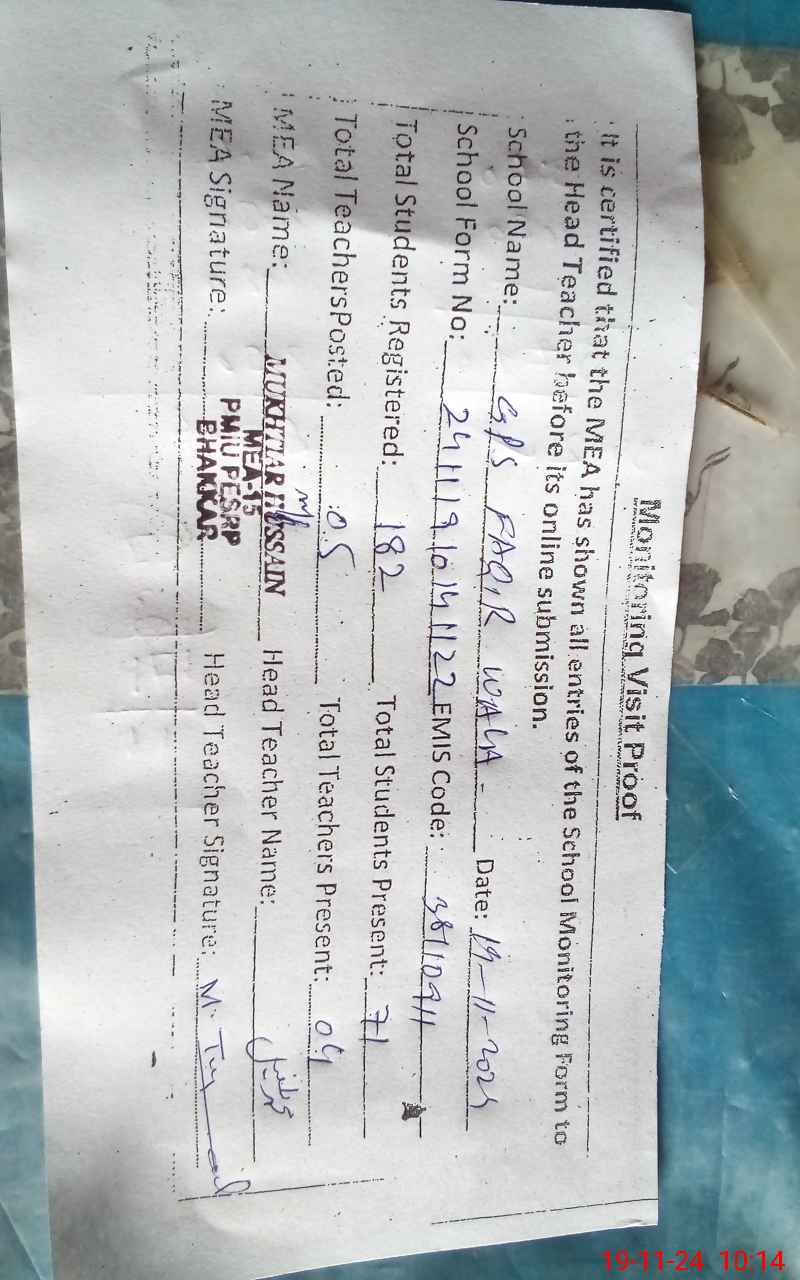 Monitoring Visit Proof
It is certified that the MEA has shown all entries of the School Monitoring Form to
the Head Teacher before its online submission.
School Name: GPS FAQIR WALA - Date: 19-11-2024
School Form No: EMIS Code: 38110911
Total Students Registered: 182 Total Students Present: 71
Total Teachers Posted: 05 Total Teachers Present: 04
MEA Name: MUKHTIAR HUSSAIN Head Teacher Name:
MEA-15
PMIU PESRP
BHAKKAR
MEA Signature: Head Teacher Signature: M.
19-11-24 10:14